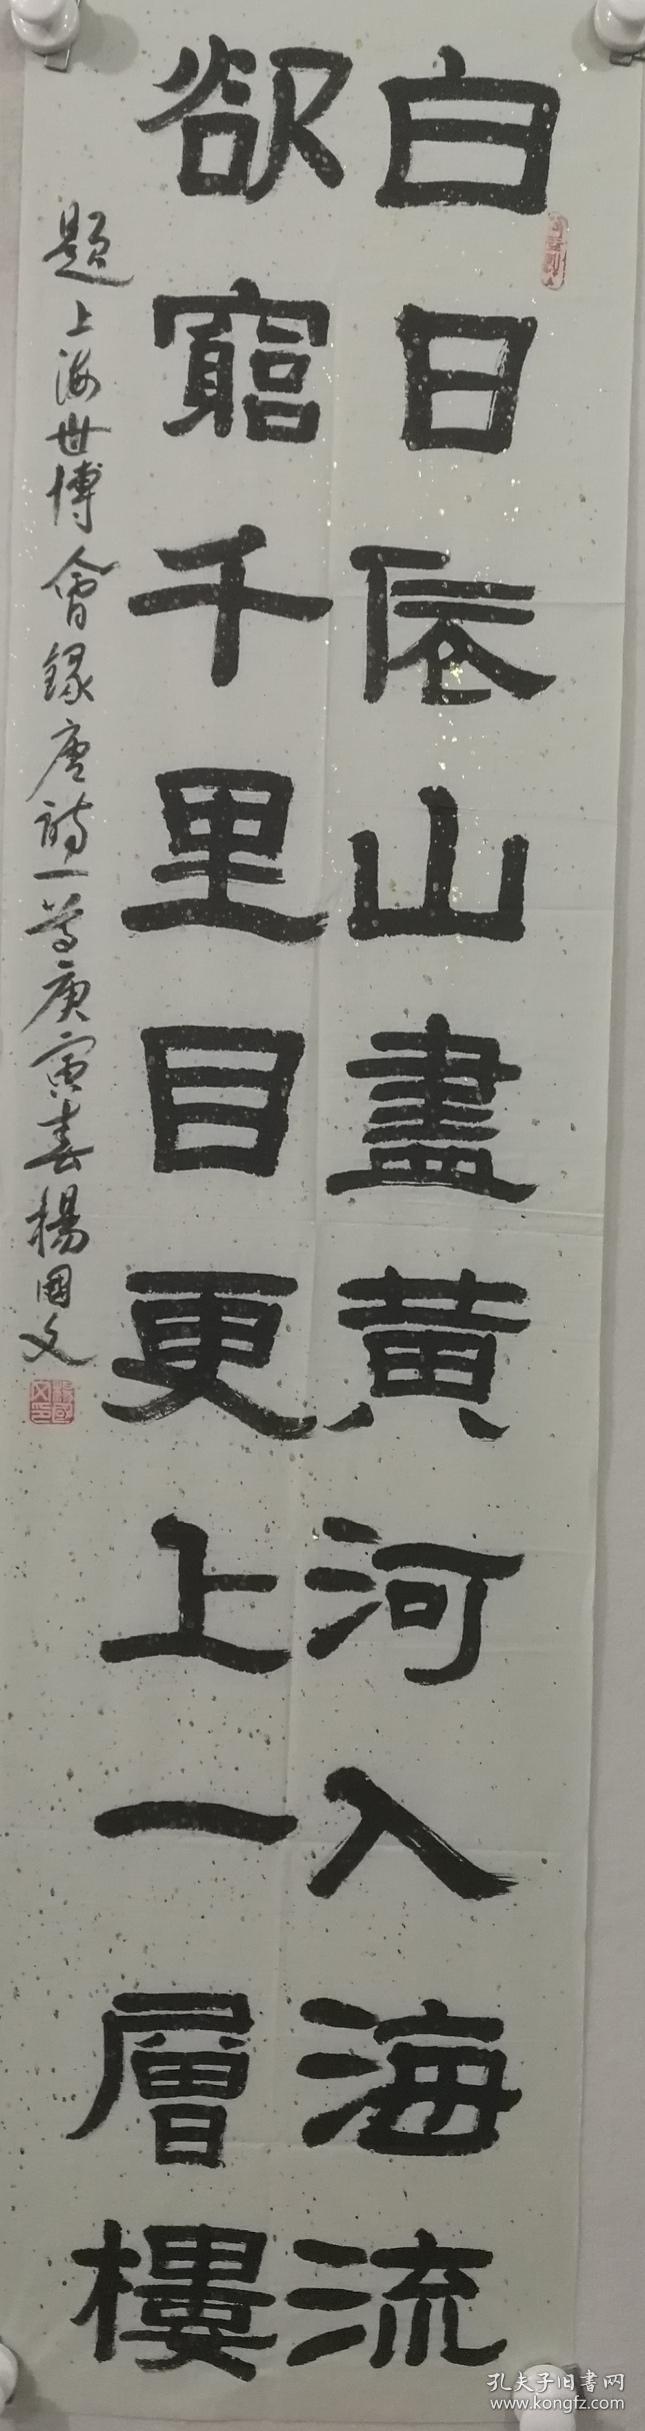 白日依山盡黄河入海流
欲窮千里目更上一層樓
題上海世博會録唐詩一首庚寅春楊國文
孔夫子旧書网
www.kongfz.com